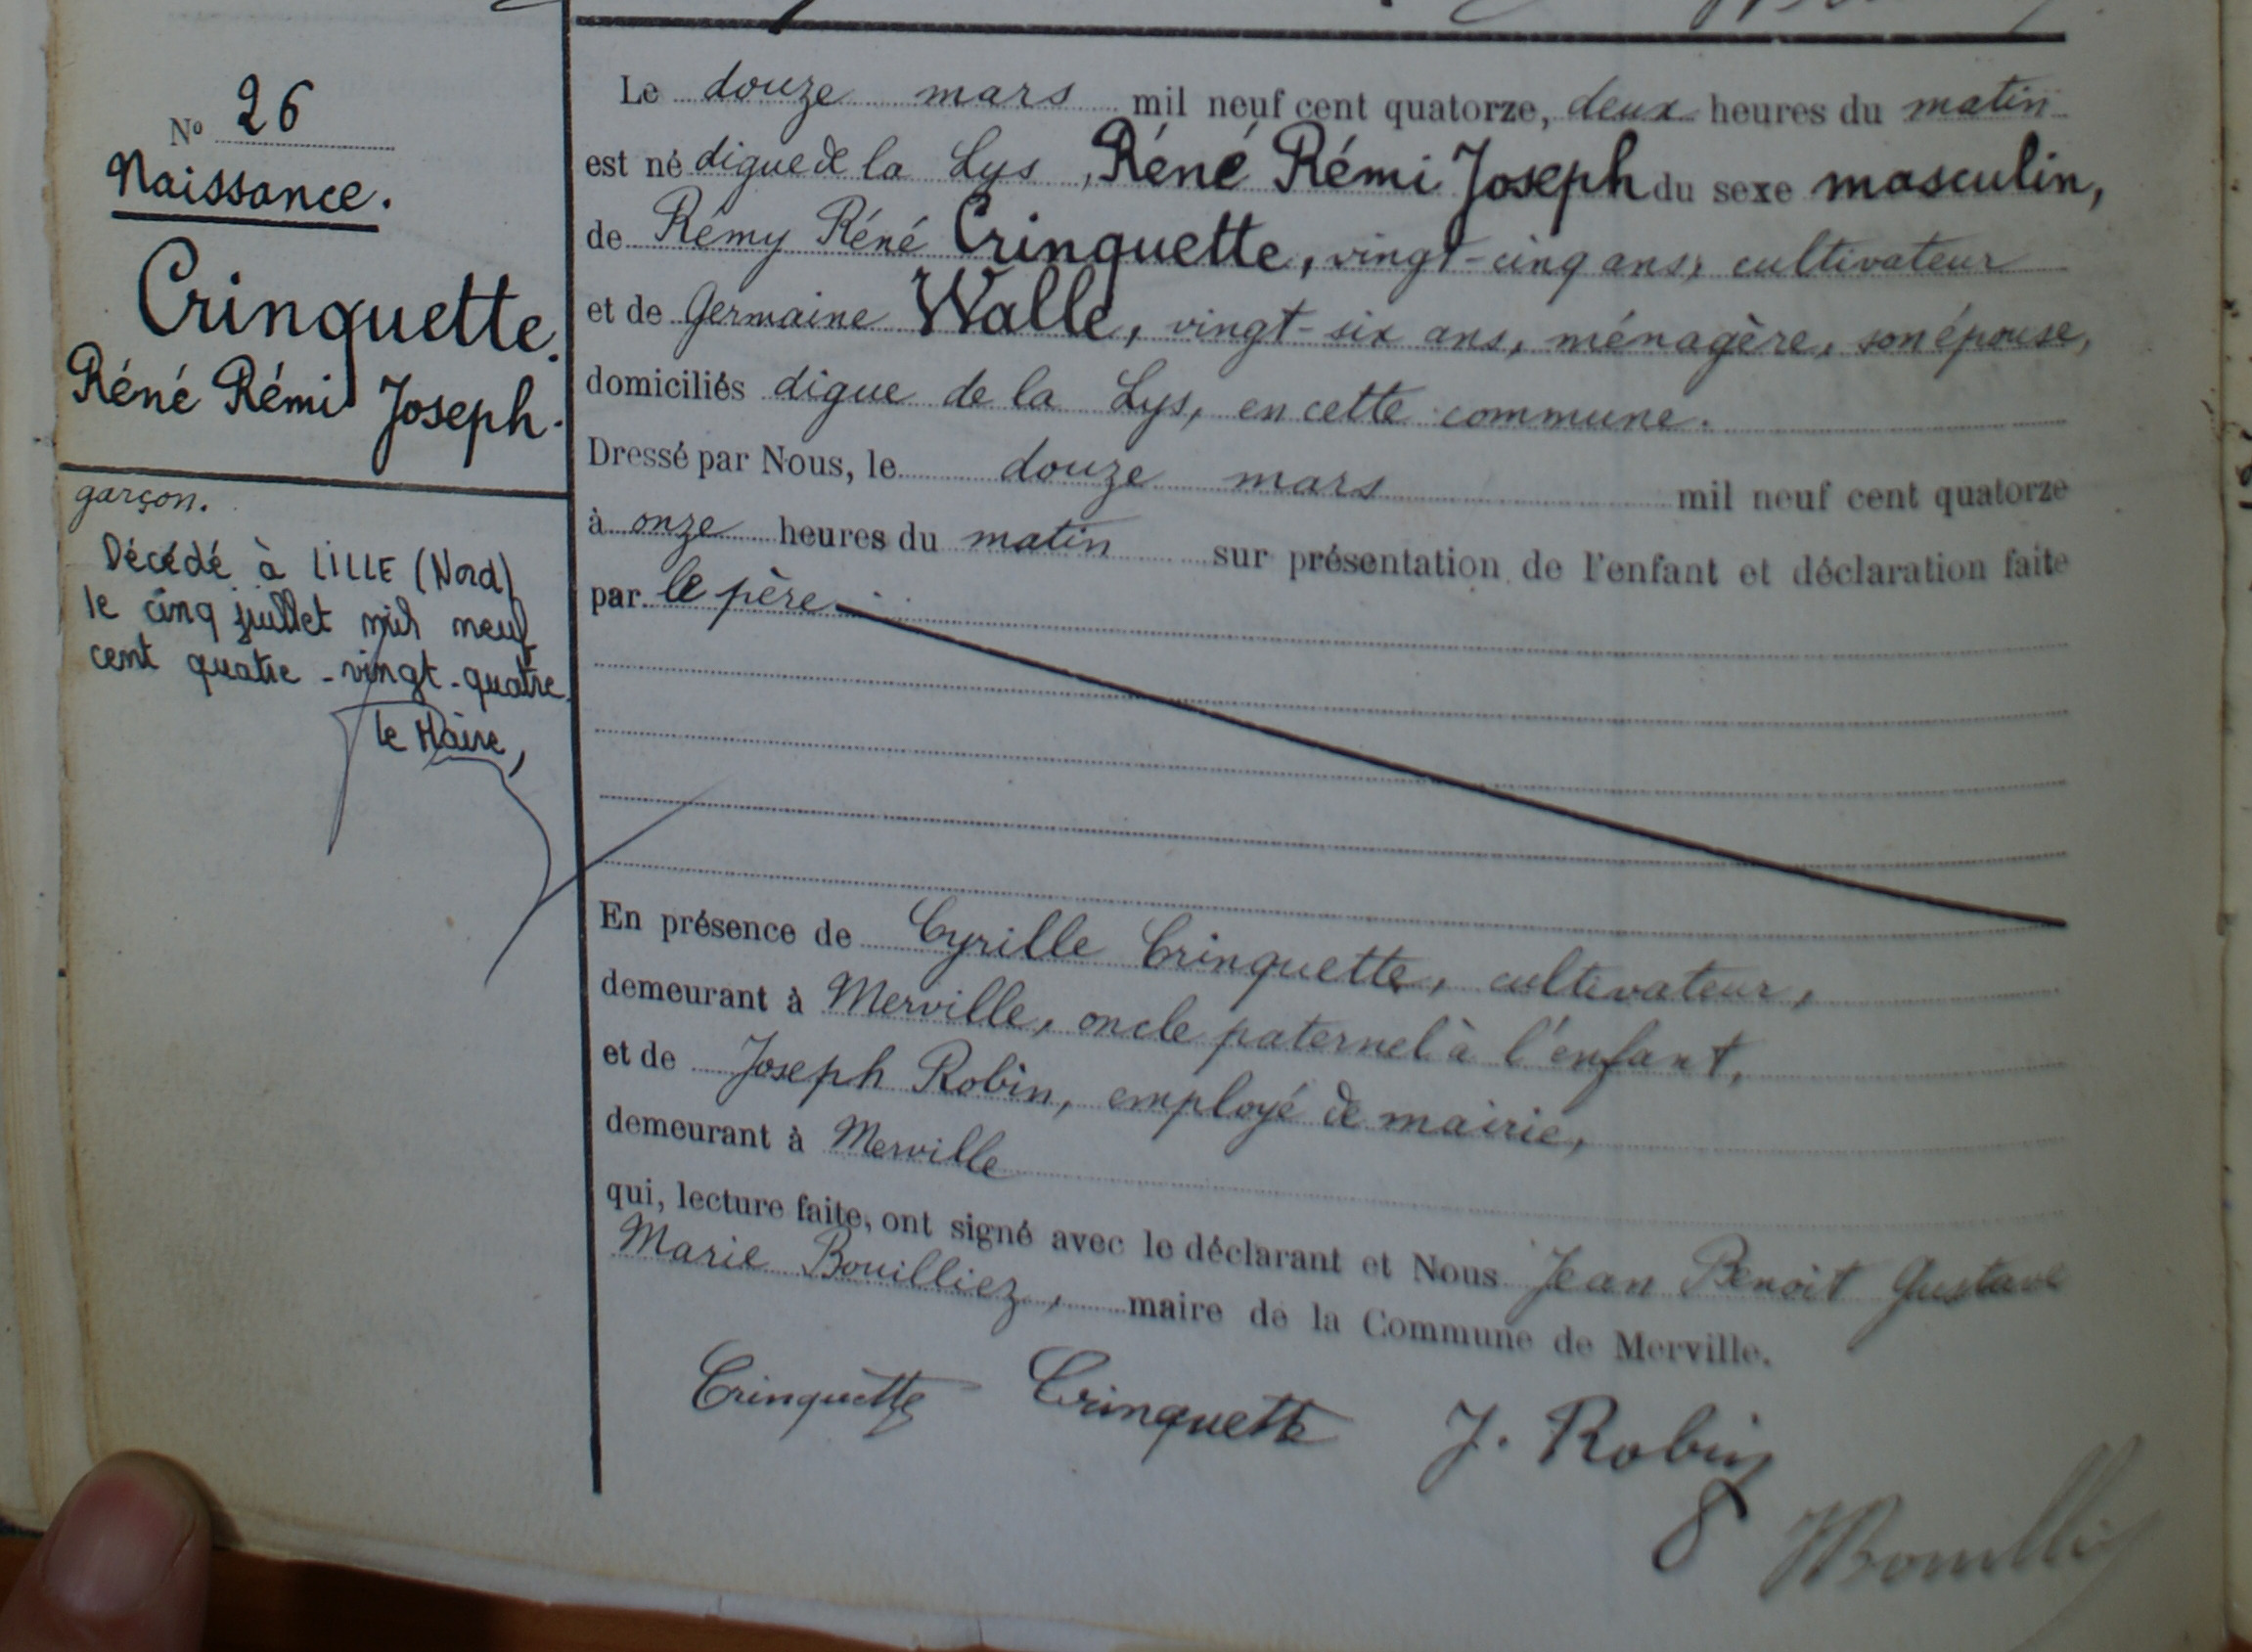 N° 26
Naissance.
Crinquette.
Réné Rémi Joseph.
garçon.
Décédé à LILLE (Nord)
le cinq juillet mil neuf
cent quatre-vingt-quatre.
Le Maire,
Le douze mars mil neuf cent quatorze, deux heures du matin
est né digue de la Lys, Réné Rémi Joseph du sexe masculin,
de Rémy Réné Crinquette, vingt-cinq ans, cultivateur
et de Germaine Walle, vingt-six ans, ménagère, son épouse,
domiciliés digue de la Lys, en cette commune.
Dressé par Nous, le douze mars mil neuf cent quatorze
à onze heures du matin sur présentation de l'enfant et déclaration faite
par le père
En présence de Cyrille Crinquette, cultivateur,
demeurant à Merville, oncle paternel à l'enfant,
et de Joseph Robin, employé de mairie,
demeurant à Merville
qui, lecture faite, ont signé avec le déclarant et Nous Jean Benoit Gustave
Marie Bouilliez, maire de la Commune de Merville.
Crinquette Crinquette J. Robin